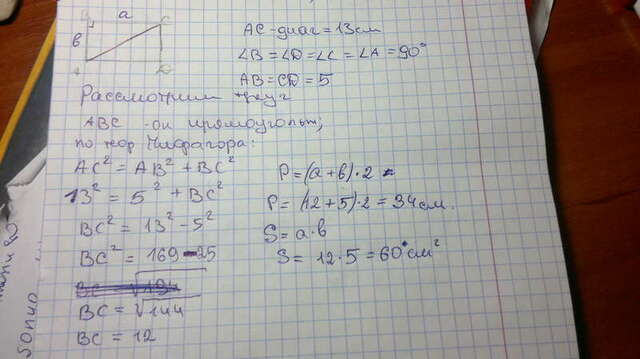 B a C
в
A D
AC - диаг = 13 см
∠B = ∠D = ∠C = ∠A = 90°
AB = CD = 5
Рассмотрим треуг
ABC - он прямоугольн;
по теор Пифагора:
AC² = AB² + BC²
13² = 5² + BC²
BC² = 13² - 5²
BC² = 169 - 25
BC = √194
BC = √144
BC = 12
P = (a + b) · 2
P = (12 + 5) · 2 = 34 см.
S = a · b
S = 12 · 5 = 60 см²